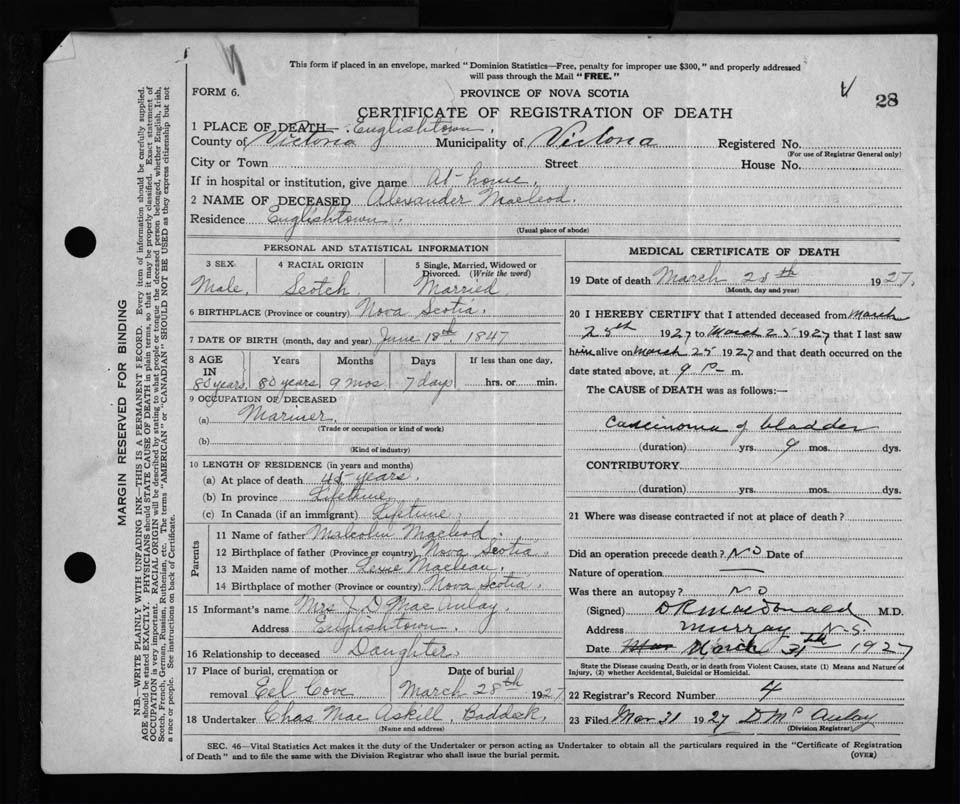 This form if placed in an envelope, marked "Dominion Statistics—Free, penalty for improper use $300," and properly addressed
will pass through the Mail "FREE."
FORM 6.
PROVINCE OF NOVA SCOTIA
28
CERTIFICATE OF REGISTRATION OF DEATH
1 PLACE OF DEATH Englishtown.
County of Victoria Municipality of Victoria Registered No.
(For use of Registrar General only)
City or Town Street House No.
If in hospital or institution, give name At home.
2 NAME OF DECEASED Alexander Macleod.
Residence Englishtown.
(Usual place of abode)
PERSONAL AND STATISTICAL INFORMATION
3 SEX 4 RACIAL ORIGIN 5 Single, Married, Widowed or
Divorced. (Write the word)
Male. Scotch Married
6 BIRTHPLACE (Province or country) Nova Scotia
7 DATE OF BIRTH (month, day and year) June 18th 1847
8 AGE Years Months Days If less than one day,
IN
80 years 80 years 9 mos 7 days hrs. or min.
9 OCCUPATION OF DECEASED
(a) Mariner
(Trade or occupation or kind of work)
(b)
(Kind of industry)
10 LENGTH OF RESIDENCE (in years and months)
(a) At place of death 45 years.
(b) In province Lifetime
(c) In Canada (if an immigrant) Lifetime.
Parents
11 Name of father Malcolm Macleod.
12 Birthplace of father (Province or country) Nova Scotia.
13 Maiden name of mother Maclean.
14 Birthplace of mother (Province or country) Nova Scotia.
15 Informant's name Mrs J. D MacAulay.
Address Englishtown.
16 Relationship to deceased Daughter.
17 Place of burial, cremation or Date of burial
removal Eel Cove March 28th 1927
18 Undertaker Chas MacAskill, Baddeck.
(Name and address)
MEDICAL CERTIFICATE OF DEATH
19 Date of death March 25th 1927.
(Month, day and year)
20 I HEREBY CERTIFY that I attended deceased from March
25th 1927 to March 25 1927 that I last saw
him alive on March 25 1927 and that death occurred on the
date stated above, at 9 P m.
The CAUSE of DEATH was as follows:—
Carcinoma of bladder
(duration) yrs. 9 mos. dys.
CONTRIBUTORY
(duration) yrs. mos. dys.
21 Where was disease contracted if not at place of death?
Did an operation precede death? No Date of
Nature of operation —
Was there an autopsy? No
(Signed) D R MacDonald M.D.
Address Murray N.S.
Date March 31th 1927
State the Disease causing Death, or in death from Violent Causes, state (1) Means and Nature of
Injury, (2) whether Accidental, Suicidal or Homicidal.
22 Registrar's Record Number 4
23 Filed Mar 31 1927 D McAulay
(Division Registrar)
SEC. 46—Vital Statistics Act makes it the duty of the Undertaker or person acting as Undertaker to obtain all the particulars required in the "Certificate of Registration
of Death" and to file the same with the Division Registrar who shall issue the burial permit. (OVER)
MARGIN RESERVED FOR BINDING
N.B.—WRITE PLAINLY WITH UNFADING INK—THIS IS A PERMANENT RECORD. Every item of information should be carefully supplied.
AGE should be stated EXACTLY. PHYSICIANS should STATE CAUSE OF DEATH in plain terms, so that it may be properly classified. Exact statement of
OCCUPATION is very important. RACIAL ORIGIN will be described by stating to what people or tongue the deceased person belonged, whether English, Irish,
Scotch, French, German, Russian, Ruthenian, etc. The terms "AMERICAN" or "CANADIAN" SHOULD NOT BE USED as they express citizenship but not
a race or people. See instructions on back of Certificate.